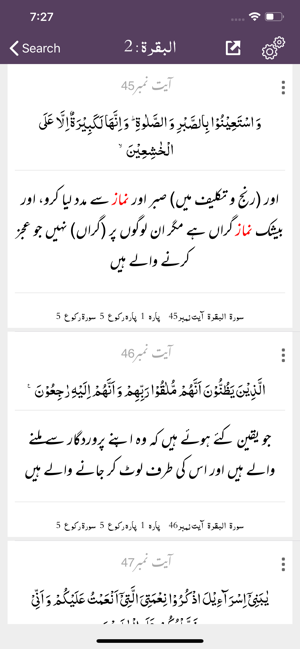 7:27
Search
البقرة: 2
آیت نمبر45
وَاسْتَعِيْنُوْا بِالصَّبْرِ وَالصَّلٰوةِ ۗ وَاِنَّهَا لَكَبِيْرَةٌ اِلَّا عَلَى
الْخٰشِعِيْنَ ۙ
اور (رنج و تکلیف میں) صبر اور نماز سے مدد لیا کرو، اور
بیشک نماز گراں ہے مگر ان لوگوں پر (گراں) نہیں جو عجز
کرنے والے ہیں
سورۃ البقرۃ آیت نمبر45 پارہ 1 پارہ رکوع 5 سورۃ رکوع 5
آیت نمبر46
الَّذِيْنَ يَظُنُّوْنَ اَنَّهُمْ مُّلٰقُوْا رَبِّهِمْ وَاَنَّهُمْ اِلَيْهِ رٰجِعُوْنَ
جو یقین کئے ہوئے ہیں کہ وہ اپنے پروردگار سے ملنے
والے ہیں اور اس کی طرف لوٹ کر جانے والے ہیں
سورۃ البقرۃ آیت نمبر46 پارہ 1 پارہ رکوع 5 سورۃ رکوع 5
آیت نمبر47
يٰبَنِيْٓ اِسْرَآءِيْلَ اذْكُرُوْا نِعْمَتِيَ الَّتِيْٓ اَنْعَمْتُ عَلَيْكُمْ وَاَنِّيْ